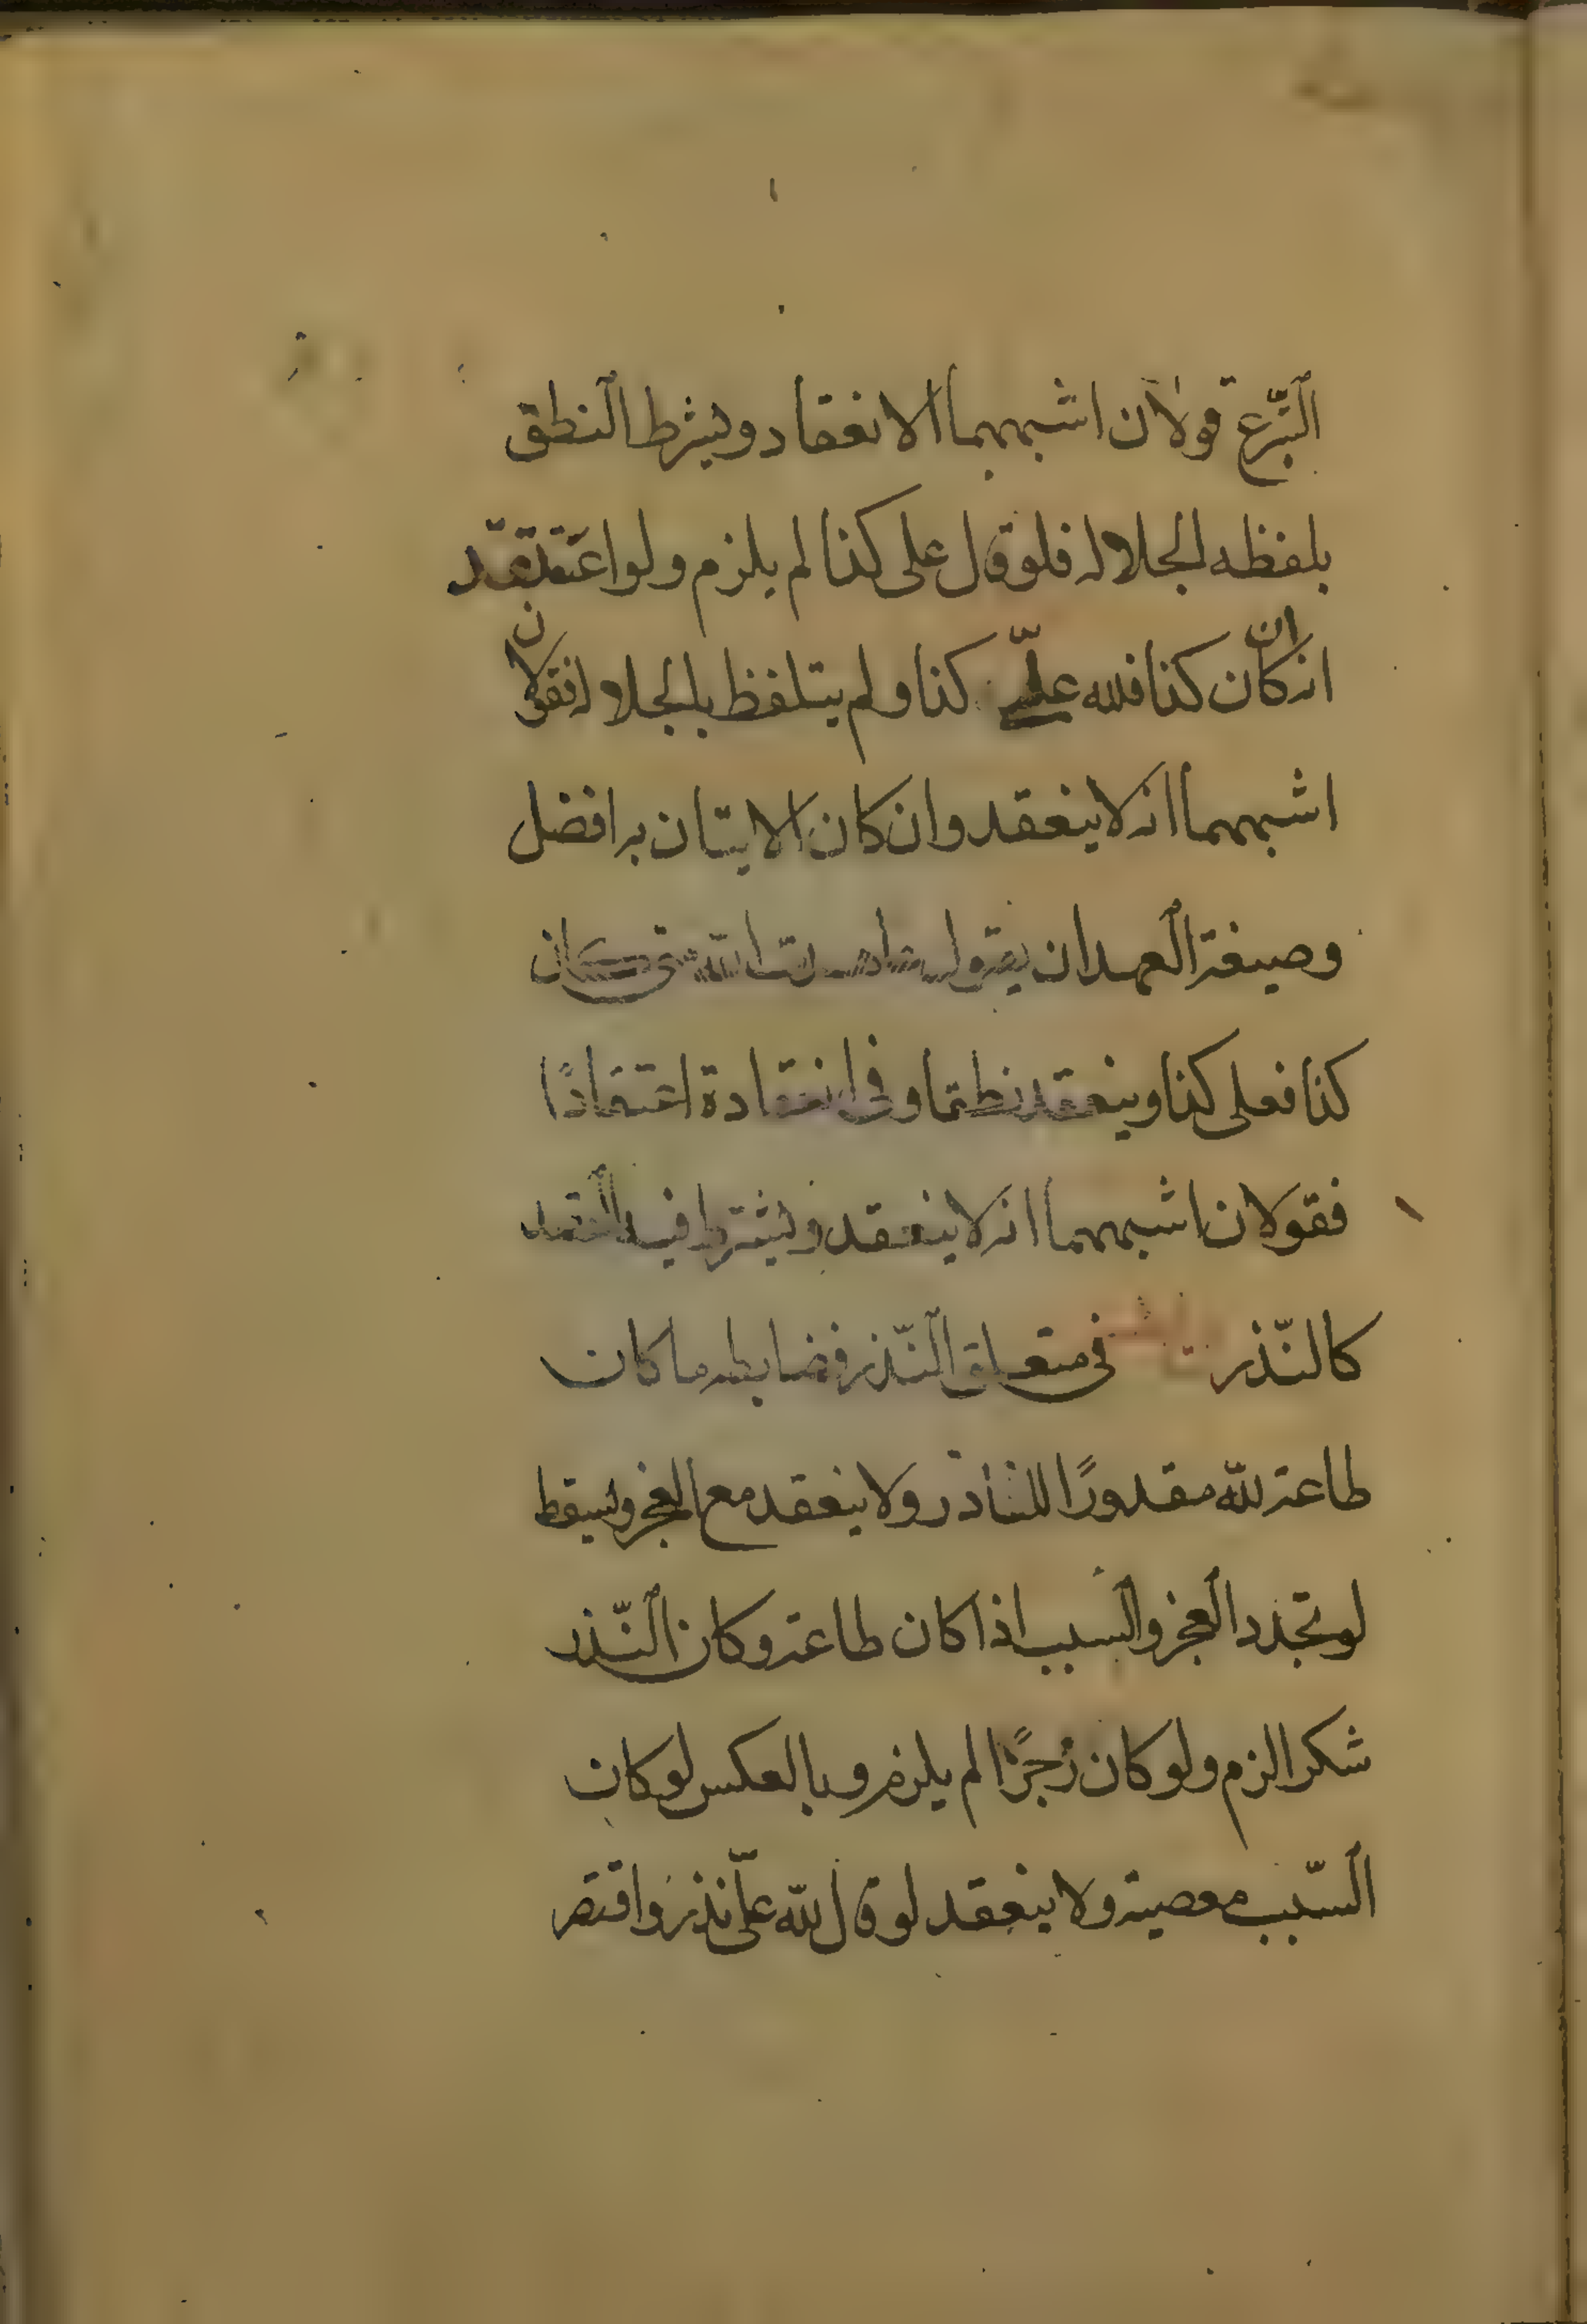 التبرع قولان اشبههما الانعقاد ويشترط النطق
بلفظه الجلاله فلو قال على كذا لم يلزم ولو اعتقد
انه ان كان كذا فلله علىّ كذا ولم يتلفظ بالجلاله فقولان
اشبههما انه لا ينعقد وان كان الاتيان به افضل
وصيغة العهد ان يقول عاهدت الله متى كان
كذا فعلى كذا وينعقد نطقا وفى انعقادة اعتقادًا
فقولان اشبههما انه لا ينعقد ويشترط فيه القصد
كالنّذر فى متعلق النّذر فضابطه ما كان
طاعة لله مقدورًا للناذر ولا ينعقد مع العجز ويسقط
لو تجدد العجز والسبب اذا كان طاعة وكان النّذر
شكرا لزم ولو كان زجرًا لم يلزم وبالعكس لو كان
السّبب معصية ولا ينعقد لو قال لله علىّ نذر واقتصر